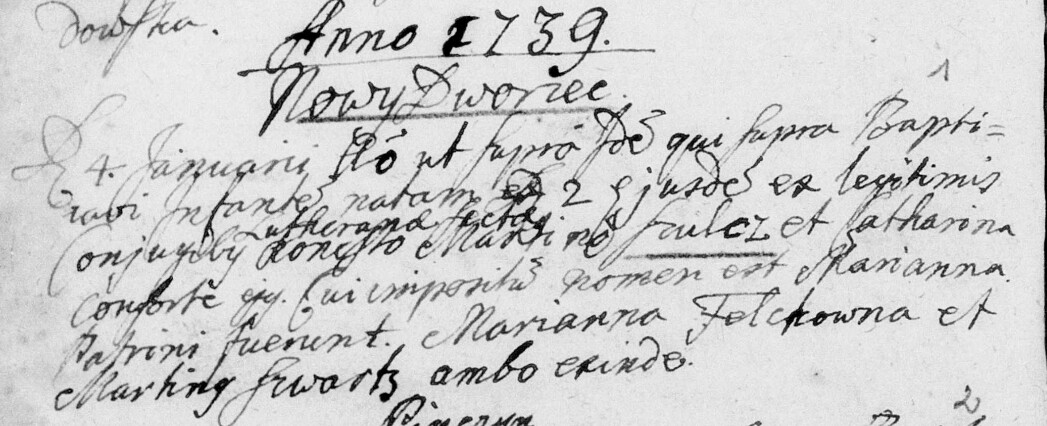 dowska.
Anno 1739.
Nowy Dworiec.
1
4. Januarii ut supra Idē qui supra Bapti=
zavi Infantē natam 2 ejusdē ex legitimis
Lutheranæ sectæ
Conjugibꝫ honesto Martino Szulcz et Catharina
Consorte ejꝯ. Cui impositū nomen est Marianna
Patrini fuerunt. Marianna Felckowna et
Martinꝯ Szwartz ambo exinde.
2